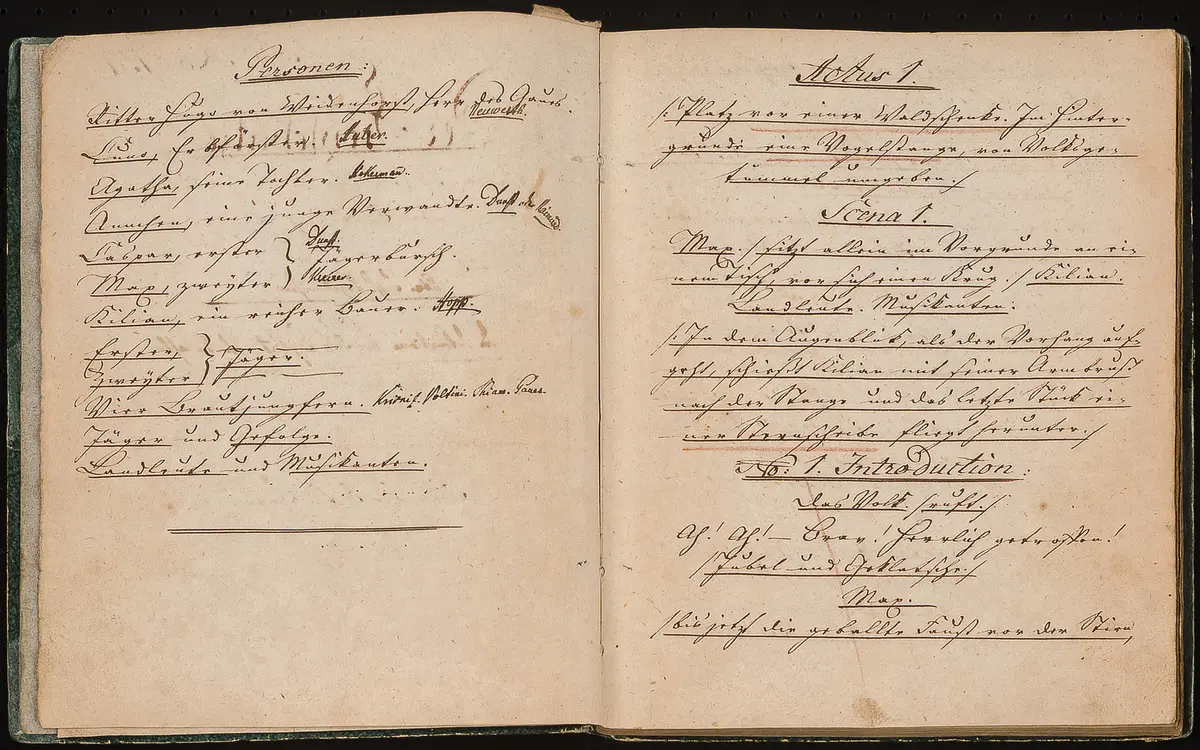 Personen:
Ritter Hugo von Weidenhorst, Herr des Gaues.
Neuwerth.
Cuno, Erbförster.
Agatha, seine Tochter.
Annchen, eine junge Verwandte. Dunst
Caspar, erster
Dunst.
Jägerbursch.
Max, zweyter
Kilian, ein reicher Bauer. Hopp.
Erster,
Jäger.
Zweyter
Vier Brautjungfern.
Jäger und Gefolge.
Landleute und Musikanten.
Actus 1.
/: Platz vor einer Waldschenke. Im Hinter-
grunde eine Vogelstange, von Volksge-
tümmel umgeben. /
Scena 1.
Max. / sitzt allein im Vorgrunde an ei-
nem Tisch, vor sich einen Krug. / Kilian.
Landleute. Musikanten.
/: In dem Augenblik, als der Vorhang auf-
geht, schießt Kilian mit seiner Armbrust
nach der Stange und das letzte Stück ei-
ner Sternscheibe fliegt herunter. /
No: 1. Introduction:
Das Volk. / ruft. /
Ah! Ah! — Brav! Herrlich getroffen!
/ Jubel und Geklatsche /
Max.
/ bis jetzt die geballte Faust vor der Stirn,